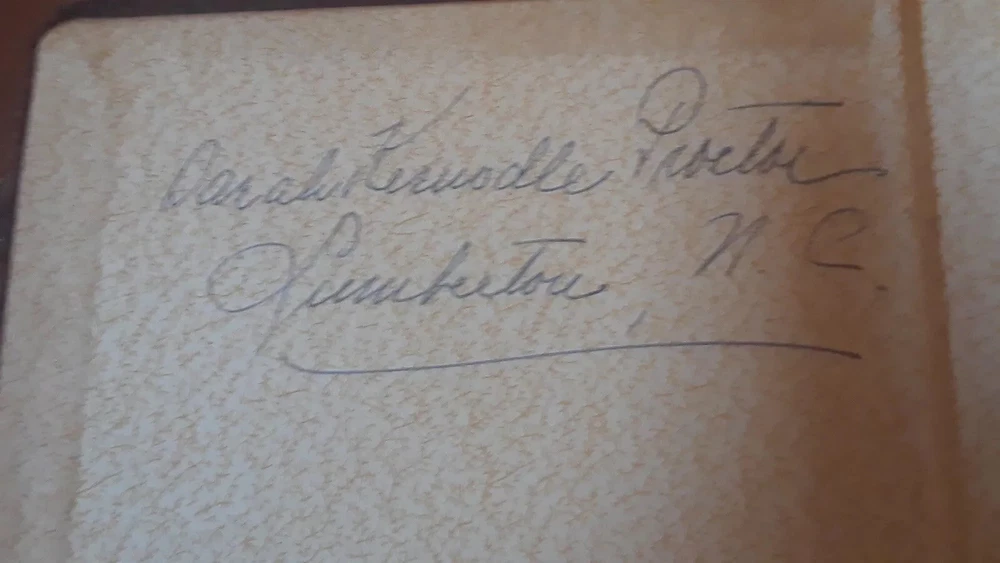 Sarah Kernodle Proctor
Lumberton, N. C.